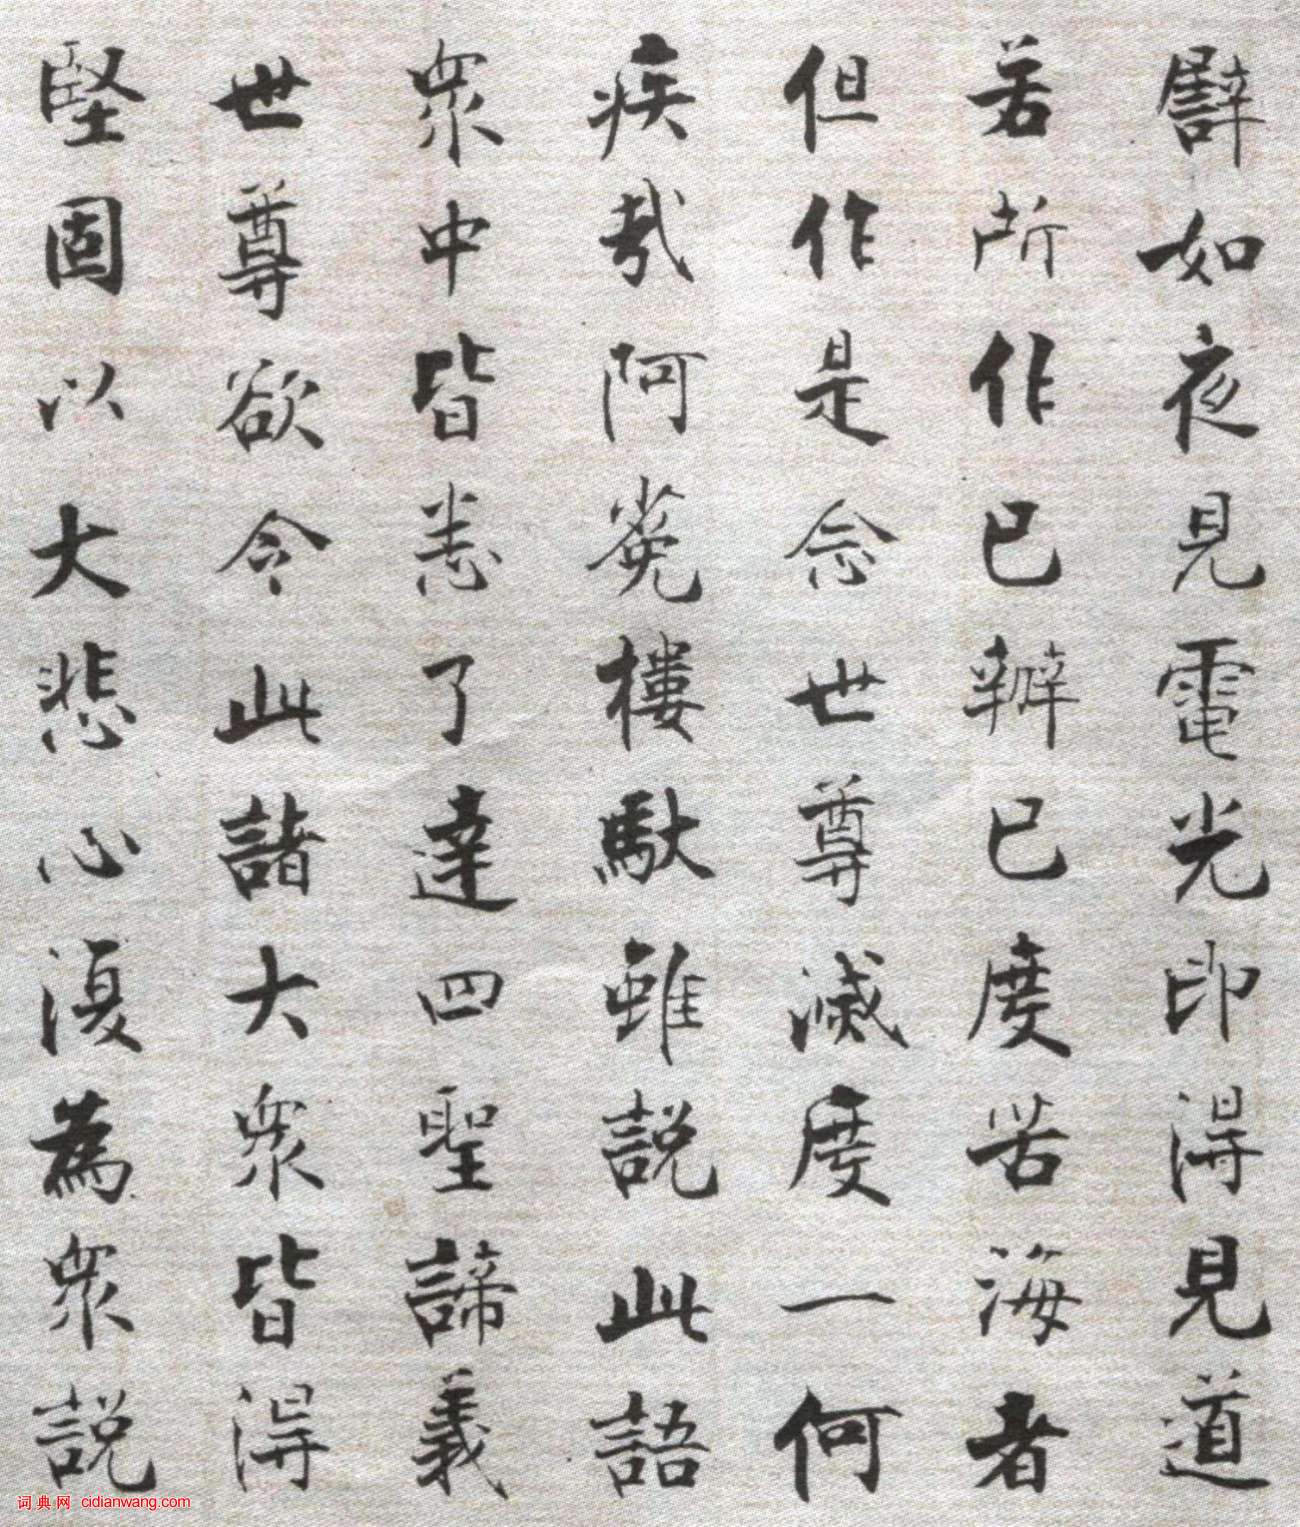 譬如夜見電光即得見道
若所作已辦已度苦海者
但作是念世尊滅度一何
疾哉阿㝹樓馱雖說此語
衆中皆悉了達四聖諦義
世尊欲令此諸大衆皆得
堅固以大悲心復為衆說
词典网 cidianwang.com